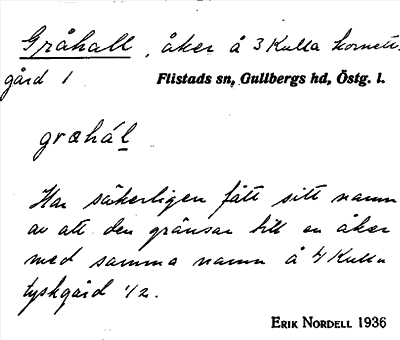 Gråhall, åker å 3 Kulla kornett-
gård 1 Flistads sn, Gullbergs hd, Östg. l.
græhál
Har säkerligen fått sitt namn
av att den gränsar till en åker
med samma namn å 4 Kulla
tyskgård 1/2.
ERIK NORDELL 1936